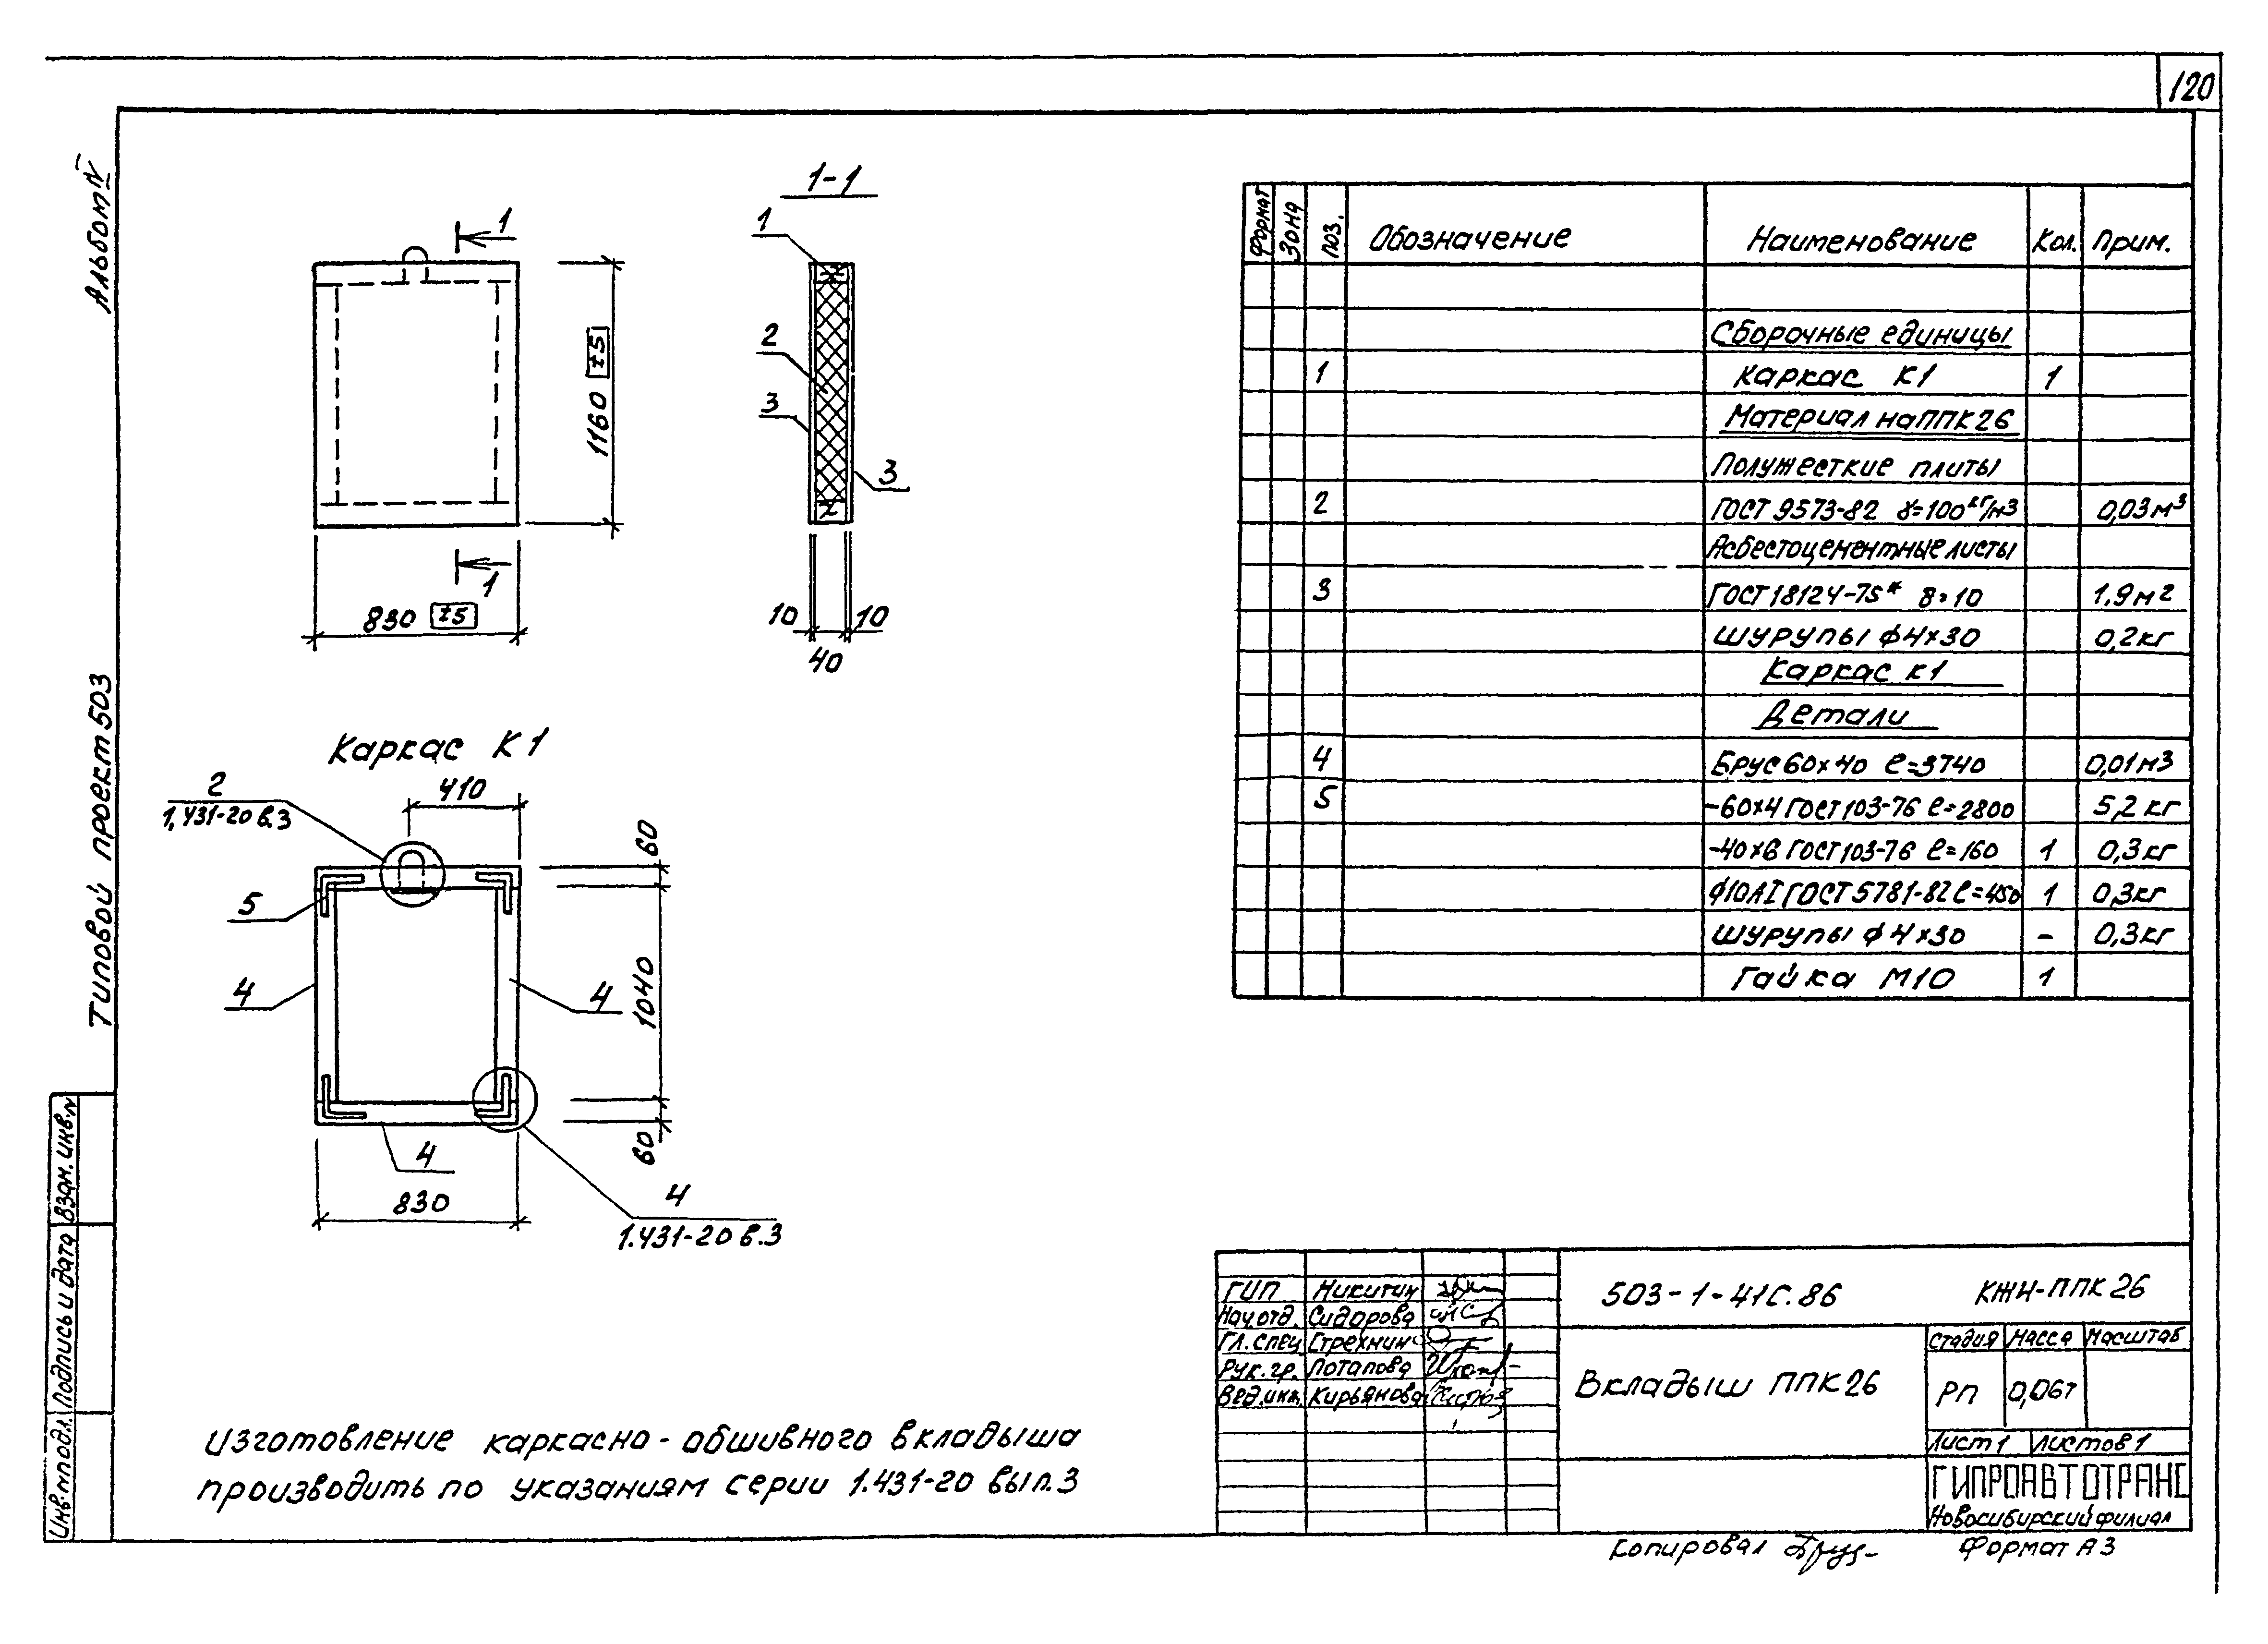 120
Альбом IV
Типовой проект 503
Взам. инв. №
Подпись и дата
Инв. № подл.
1-1
1
1
1160 ±5
830 ±5
1
2
3
3
10 10
40
Каркас К1
2
1.431-20 в.3
410
60
5
4
4
1040
4
60
830
4
1.431-20 в.3
Формат Зона Поз. Обозначение Наименование Кол. Прим.
Сборочные единицы
1 Каркас К1 1
Материал на ППК26
Полужесткие плиты
2 ГОСТ 9573-82 γ=100кг/м3 0,03м3
Асбестоцементные листы
3 ГОСТ 18124-75* δ=10 1.9м2
Шурупы ф4×30 0,2кг
Каркас К1
Детали
4 Брус 60×40 ℓ=3740 0,01м3
5 -60×4 ГОСТ 103-76 ℓ=2800 5,2кг
-40×6 ГОСТ 103-76 ℓ=160 1 0,3кг
ф10АI ГОСТ 5781-82 ℓ=450 1 0,3кг
Шурупы ф4×30 - 0,3кг
Гайка М10 1
Изготовление каркасно-обшивного вкладыша
производить по указаниям серии 1.431-20 вып.3
ГИП Никитин
Нач.отд. Сидорова
Гл. спец. Стрехнин
Рук. гр. Потапова
Вед.инж. Кирьянова
503-1-41С.86 КЖИ-ППК26
Вкладыш ППК26
Стадия Масса Масштаб
РП 0,06т
Лист 1 Листов 1
ГИПРОАВТОТРАНС
Новосибирский филиал
Копировал
Формат А3